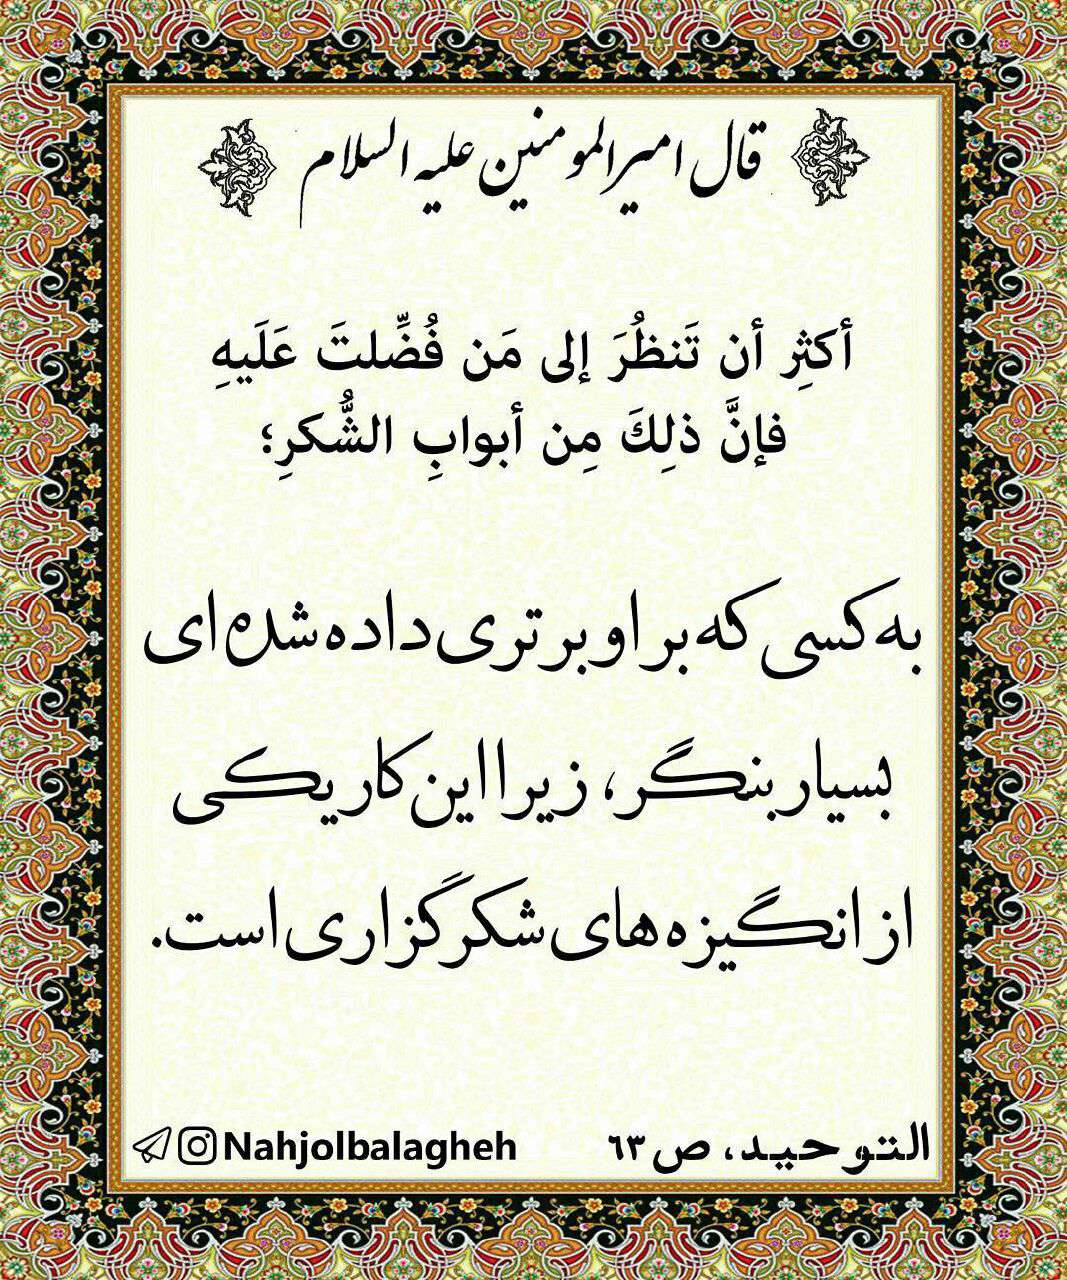 قال امیرالمومنین علیه السلام
أکثِر أن تَنظُرَ إلی مَن فُضِّلتَ عَلَیهِ
فإنَّ ذلِكَ مِن أبوابِ الشُّکرِ؛
به کسی که بر او برتری داده شده ای
بسیار بنگر، زیرا این کار یکی
از انگیزه های شکرگزاری است.
التوحید، ص ٦٣
Nahjolbalagheh